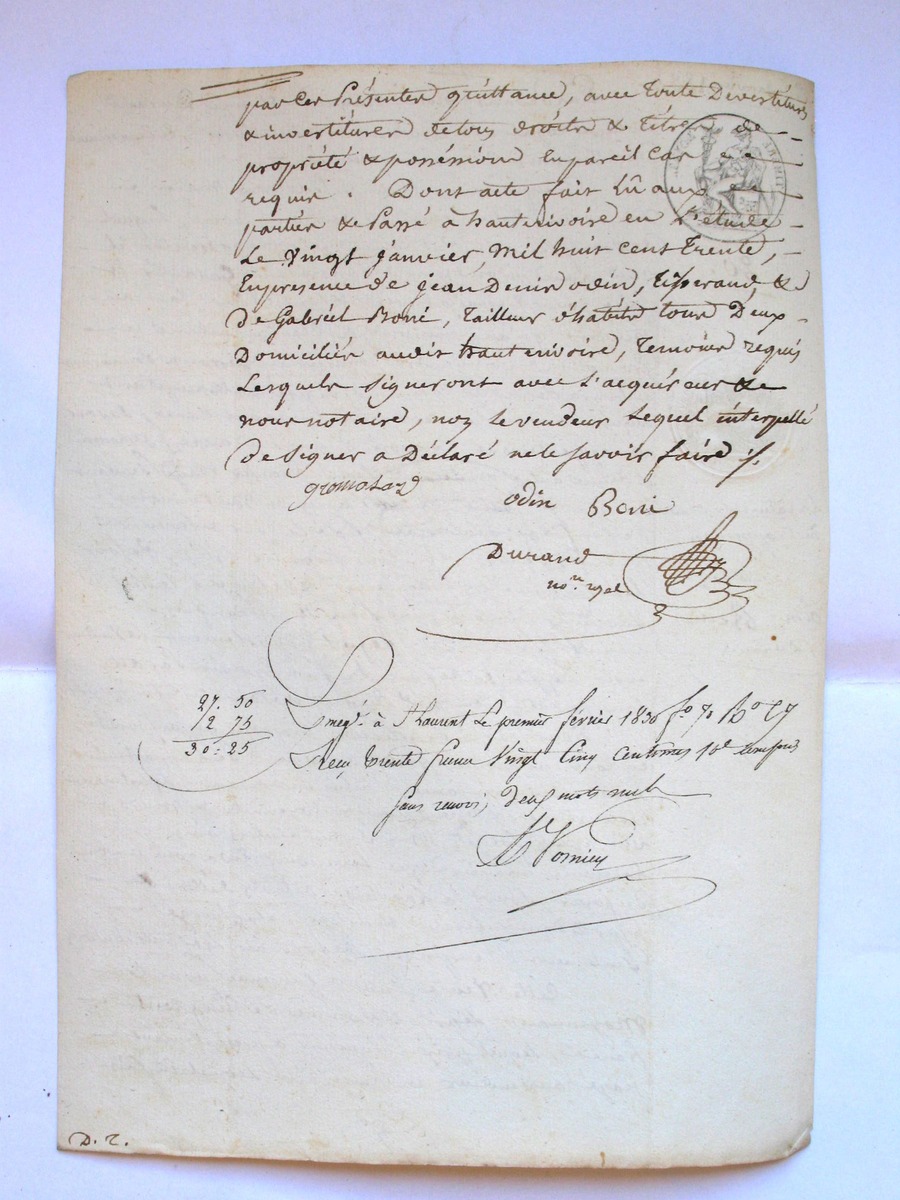 par ces Présentes quittance, avec toute Devestitures
& investitures de tous droits & titres de
propriété & possession en pareil cas
requis. Dont acte fait lû aux
parties & Passé à hauterivoire en L'étude
Le vingt janvier, mil huit cent trente,
En presence de jean Denis odin, tisserand, &
de Gabriel Boné, tailleur d'habits tous Deux
Domiciliés audit hauterivoire, temoins requis
Lesquels signeront avec L'acquéreur &
nous notaire, non le vendeur lequel interpellé
de signer a Déclaré ne le savoir faire ./.
odin Boné
Durand
no.re royal
27. 50
2 75
30. 25
Enreg. à St Laurent Le premier février 1830 fo 70
Reçu trente francs Vingt Cinq Centimes 10e compris
sans renvoi, deux mots nuls
D. T.